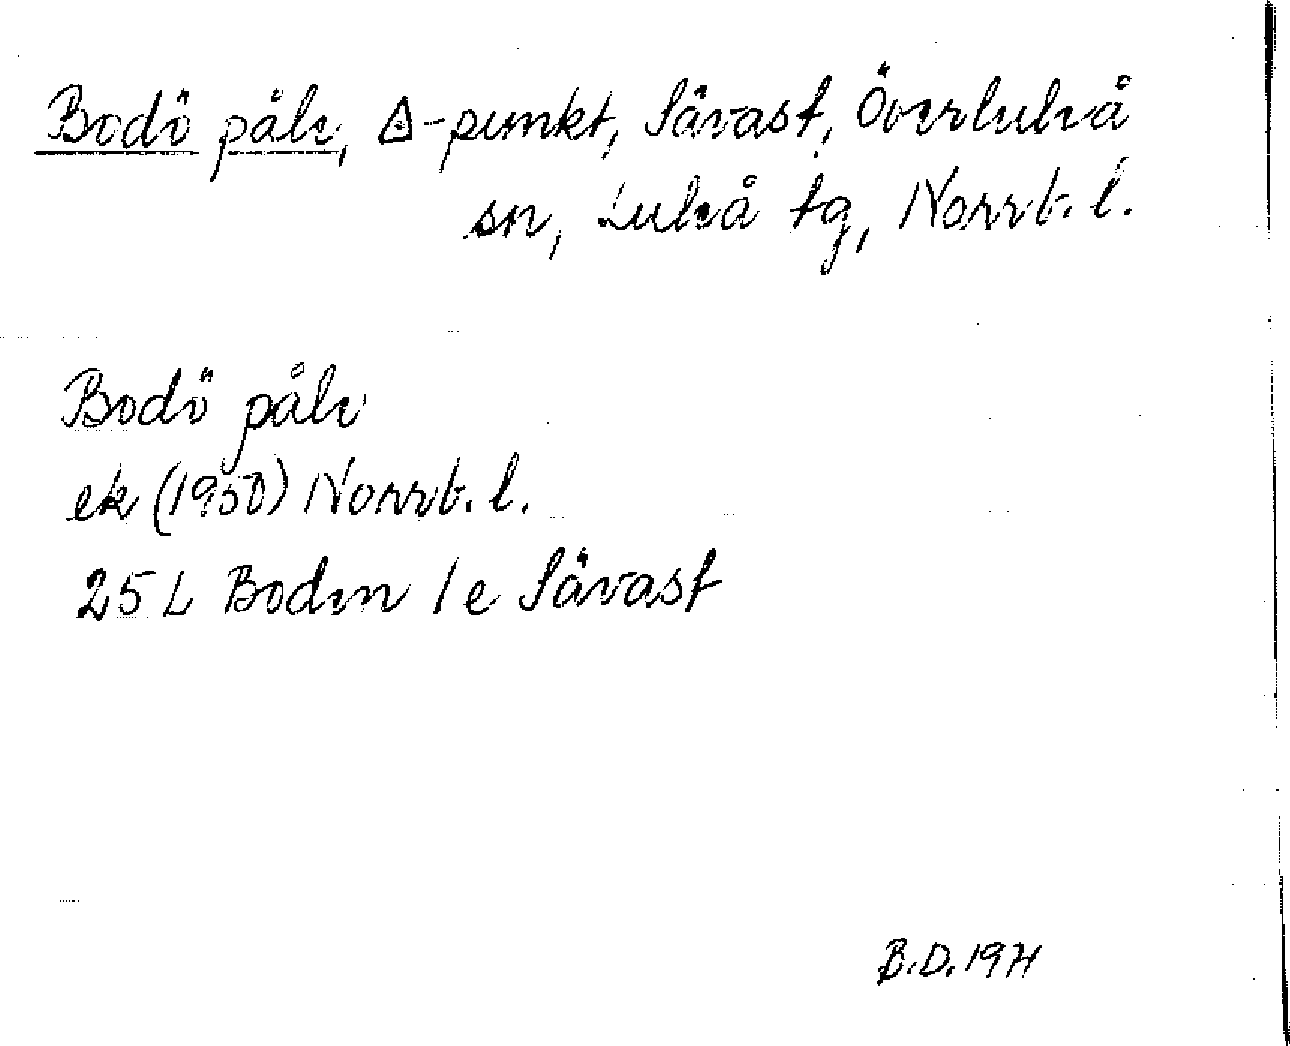 Bodö påle, △-punkt, Sävast, Överluleå
sn, Luleå tg, Norrb. l.
Bodö påle
ek (1950) Norrb. l.
25 L Boden 1 e Sävast
B.D. 1971